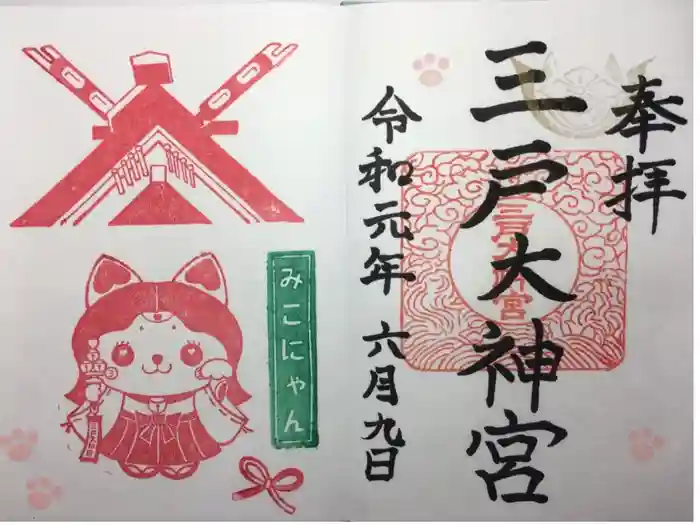 奉拝
三戸大神宮
三戸大神宮
令和元年 六月九日
みこにゃん